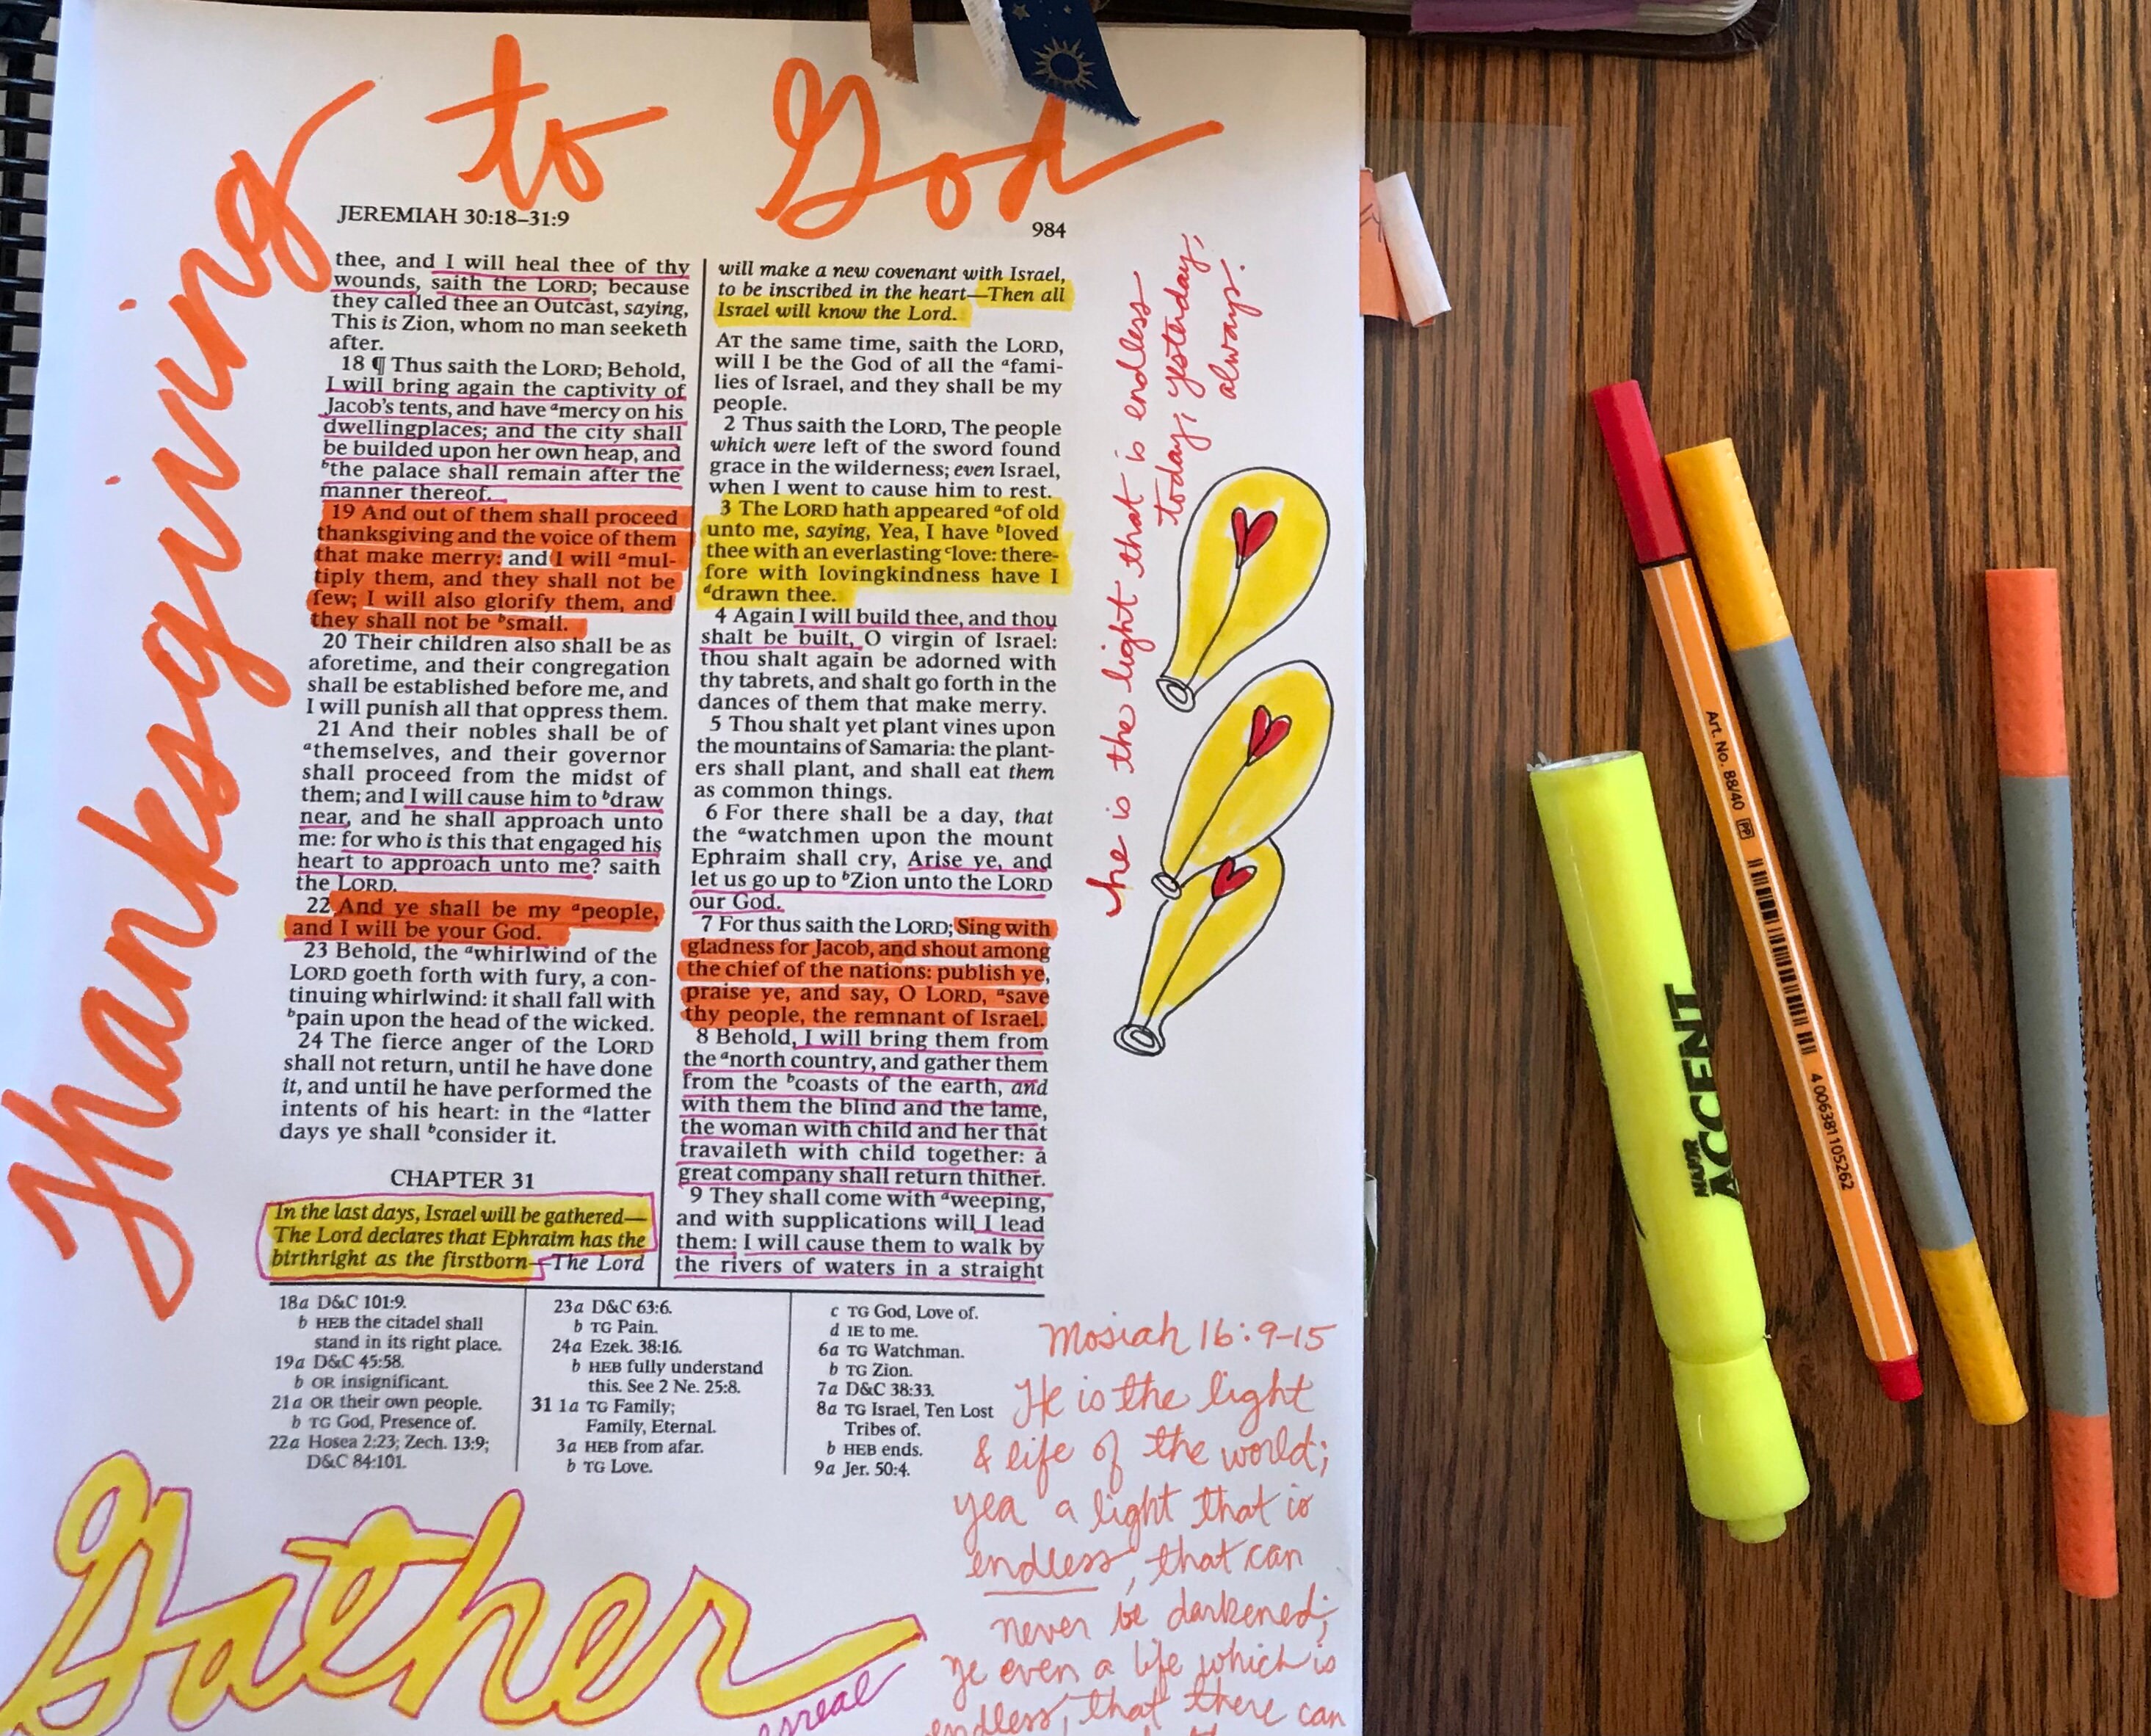 Thanksgiving to God
JEREMIAH 30:18–31:9
984
thee, and I will heal thee of thy
wounds, saith the LORD; because
they called thee an Outcast, saying,
This is Zion, whom no man seeketh
after.
18 ¶ Thus saith the LORD; Behold,
I will bring again the captivity of
Jacob's tents, and have ᵃmercy on his
dwellingplaces; and the city shall
be builded upon her own heap, and
ᵇthe palace shall remain after the
manner thereof.
19 And out of them shall proceed
thanksgiving and the voice of them
that make merry: and I will ᵃmul-
tiply them, and they shall not be
few; I will also glorify them, and
they shall not be ᵇsmall.
20 Their children also shall be as
aforetime, and their congregation
shall be established before me, and
I will punish all that oppress them.
21 And their nobles shall be of
ᵃthemselves, and their governor
shall proceed from the midst of
them; and I will cause him to ᵇdraw
near, and he shall approach unto
me: for who is this that engaged his
heart to approach unto me? saith
the LORD.
22 And ye shall be my ᵃpeople,
and I will be your God.
23 Behold, the ᵃwhirlwind of the
LORD goeth forth with fury, a con-
tinuing whirlwind: it shall fall with
ᵇpain upon the head of the wicked.
24 The fierce anger of the LORD
shall not return, until he have done
it, and until he have performed the
intents of his heart: in the ᵃlatter
days ye shall ᵇconsider it.
CHAPTER 31
In the last days, Israel will be gathered—
The Lord declares that Ephraim has the
birthright as the firstborn—The Lord
will make a new covenant with Israel,
to be inscribed in the heart—Then all
Israel will know the Lord.
AT the same time, saith the LORD,
will I be the God of all the ᵃfami-
lies of Israel, and they shall be my
people.
2 Thus saith the LORD, The people
which were left of the sword found
grace in the wilderness; even Israel,
when I went to cause him to rest.
3 The LORD hath appeared ᵃof old
unto me, saying, Yea, I have ᵇloved
thee with an everlasting ᶜlove: there-
fore with lovingkindness have I
ᵈdrawn thee.
4 Again I will build thee, and thou
shalt be built, O virgin of Israel:
thou shalt again be adorned with
thy tabrets, and shalt go forth in the
dances of them that make merry.
5 Thou shalt yet plant vines upon
the mountains of Samaria: the plant-
ers shall plant, and shall eat them
as common things.
6 For there shall be a day, that
the ᵃwatchmen upon the mount
Ephraim shall cry, Arise ye, and
let us go up to ᵇZion unto the LORD
our God.
7 For thus saith the LORD; Sing with
gladness for Jacob, and shout among
the chief of the nations: publish ye,
praise ye, and say, O LORD, ᵃsave
thy people, the remnant of Israel.
8 Behold, I will bring them from
the ᵃnorth country, and gather them
from the ᵇcoasts of the earth, and
with them the blind and the lame,
the woman with child and her that
travaileth with child together: a
great company shall return thither.
9 They shall come with ᵃweeping,
and with supplications will I lead
them: I will cause them to walk by
the rivers of waters in a straight
he is the light that is endless
today; yesterday;
always.
18a D&C 101:9.
b HEB the citadel shall
stand in its right place.
19a D&C 45:58.
b OR insignificant.
21a OR their own people.
b TG God, Presence of.
22a Hosea 2:23; Zech. 13:9;
D&C 84:101.
23a D&C 63:6.
b TG Pain.
24a Ezek. 38:16.
b HEB fully understand
this. See 2 Ne. 25:8.
31 1a TG Family;
Family, Eternal.
3a HEB from afar.
b TG Love.
c TG God, Love of.
d IE to me.
6a TG Watchman.
b TG Zion.
7a D&C 38:33.
8a TG Israel, Ten Lost
Tribes of.
b HEB ends.
9a Jer. 50:4.
Gather
Mosiah 16:9-15
He is the light
& life of the world;
yea a light that is
endless, that can
never be darkened;
ye even a life which is
endless, that there can
MAJOR
ACCENT
Art. No. 88/40 PP
4 006381 105262